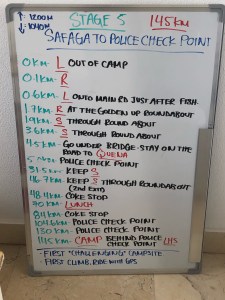 ↑ 1200m
↓ 1040m
STAGE 5
145km
SAFAGA TO POLICE CHECK POINT
0km - L OUT OF CAMP
0.1km - R
0.6km - L ONTO MAIN RD JUST AFTER FISH.
1.7km - R AT THE GOLDEN UP ROUNDABOUT
1.9km - S THROUGH ROUND ABOUT
3.6km - S THROUGH ROUND ABOUT
4.5km - GO UNDER BRIDGE - STAY ON THE
ROAD TO QUENA
POLICE CHECK POINT
31.5km - KEEP S
46.7km - KEEP S THROUGH ROUNDABOUT
(2nd EXIT)
48.4km - COKE STOP
70km - LUNCH
84km - COKE STOP
104.6km - POLICE CHECK POINT
130km - POLICE CHECK POINT
145km - CAMP BEHIND POLICE
CHECK POINT LHS
- FIRST "CHALLENGING" CAMPSITE
- FIRST CLIMB, RIDE WITH GPS